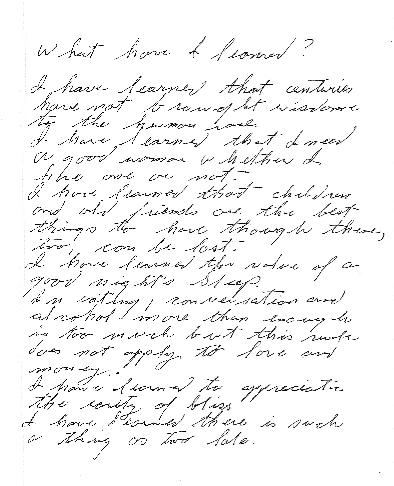 What have I learned?
I have learned that centuries
have not brought wisdome
to the human race.
I have learned that I need
a good woman whether I
like one or not.
I have learned that children
and old friends are the best
things to have though these,
too, can be lost.
I have learned the value of a
good night's sleep.
In eating, conversation and
alcohol more than enough
is too much but this rule
does not apply to love and
money.
I have learned to appreciate
the rarity of bliss
I have learned there is such
a thing as too late.